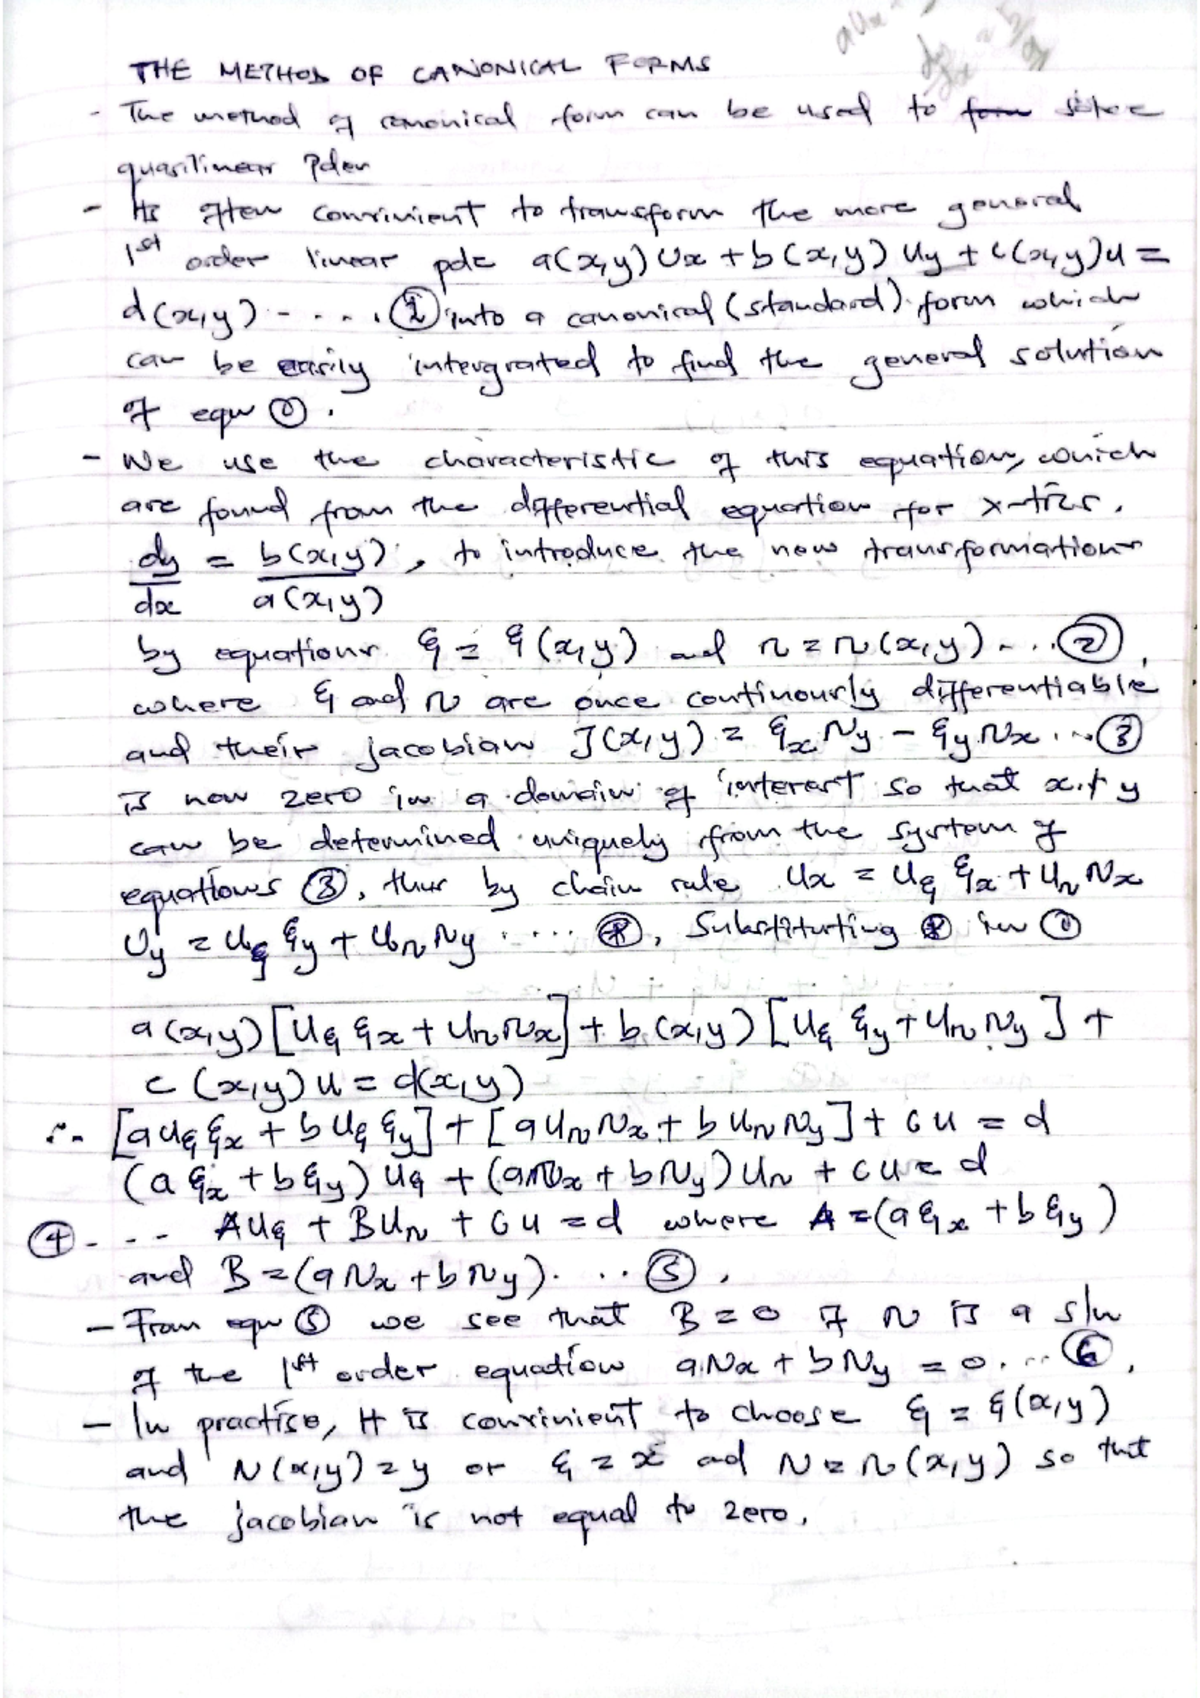 THE METHOD OF CANONICAL FORMS
- The method of canonical form can be used to solve
quasilinear Pdes
- Its often convinient to transform the more general
1st order linear pde a(x,y)Ux + b(x,y)Uy + c(x,y)u =
d(x,y) - . . . . ① into a canonical (standard) form which
can be easily intergrated to find the general solution
of eqn ① .
- We use the characteristic of this equation, which
are found from the differential equation for x-tics.
dy/dx = b(x,y)/a(x,y) , to introduce the new transformations
by equations ξ = ξ(x,y) and η = η(x,y) - . . . ② ,
where ξ and η are once continously differentiable
and their jacobian J(x,y) = ξx ηy - ξy ηx . . . ③
is non zero in a domain of interest so that x + y
can be determined uniquely from the system of
equations ③, thus by chain rule Ux = Uξ ξx + Uη ηx
Uy = Uξ ξy + Uη ηy . . . . ⊛, Substituting ⊛ in ①
a(x,y)[Uξ ξx + Uη ηx] + b(x,y)[Uξ ξy + Uη ηy] +
c(x,y)u = d(x,y)
∴ [aUξ ξx + bUξ ξy] + [aUη ηx + bUη ηy] + cu = d
(aξx + bξy)Uξ + (aηx + bηy)Uη + cu = d
④ - - - AUξ + BUη + Cu = d where A = (aξx + bξy)
and B = (aηx + bηy). . . . ⑤ .
- From eqn ⑤ we see that B = 0 if η is a s/n
of the 1st order equation aηx + bηy = 0 . . . ⑥ .
- In practise, it is convinient to choose ξ = ξ(x,y)
and η(x,y) = y or ξ = x ad η = η(x,y) so tht
the jacobian is not equal to zero.